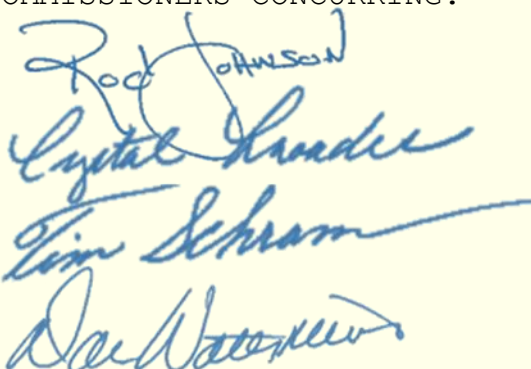 OMMISSIONERS CONCURRING:
Rod Johnson
Crystal Rhoades
Tim Schram
Dan Watermeier